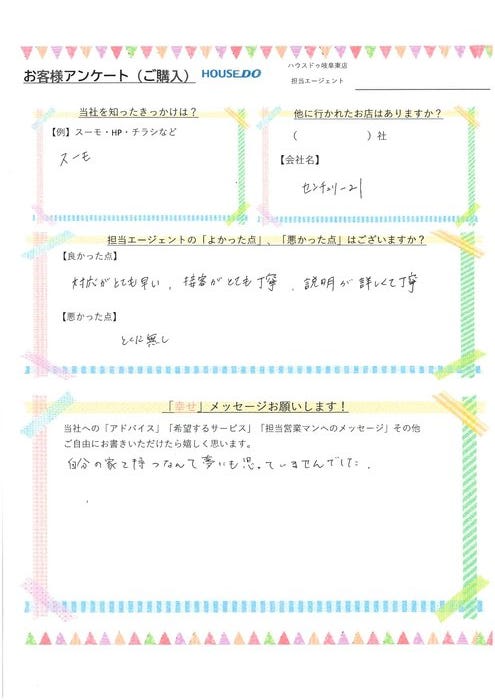 ハウスドゥ岐阜東店
お客様アンケート（ご購入） HOUSEDO
担当エージェント
当社を知ったきっかけは？
【例】スーモ・HP・チラシなど
スーモ
他に行かれたお店はありますか？
（　　　　　　　）社
【会社名】
センチュリー21
担当エージェントの「よかった点」、「悪かった点」はございますか？
【良かった点】
対応がとても早い、接客がとても丁寧、説明が詳しくて丁寧
【悪かった点】
とくに無し
「幸せ」メッセージお願いします！
当社への「アドバイス」「希望するサービス」「担当営業マンへのメッセージ」その他
ご自由にお書きいただけたら嬉しく思います。
自分の家を持つなんて夢にも思っていませんでした。